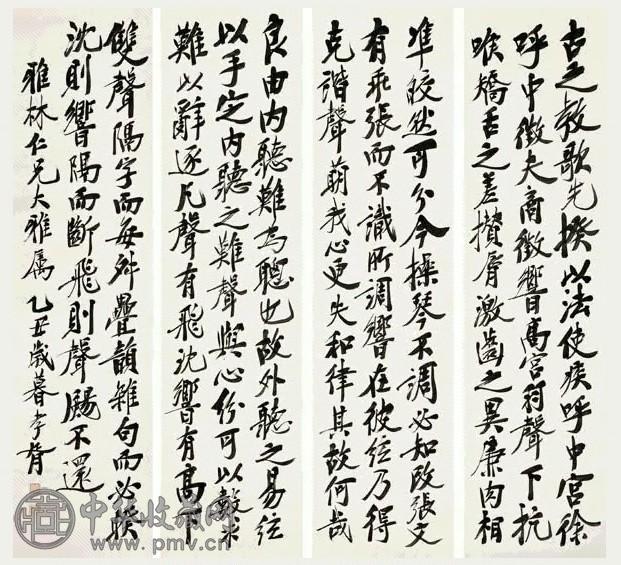 古之教歌先揆以法使疾呼中宮徐
呼中徵夫商徵響高宮羽聲下抗
喉矯舌之差攢脣激齒之異廉肉相
準皎然可分今操琴不調必知改張文
有乖張而不識所調響在彼弦乃得
克諧聲萌我心更失和律其故何哉
良由內聽難為聰也故外聽之易弦
以手定內聽之難聲與心紛可以數求
難以辭逐凡聲有飛沈響有高下
雙聲隔字而每舛疊韻雜句而必睽
沈則響隔而斷飛則聲颺不還
雅林仁兄大雅屬 乙丑歲暮 孝胥
中华收藏网
www.pmv.cn